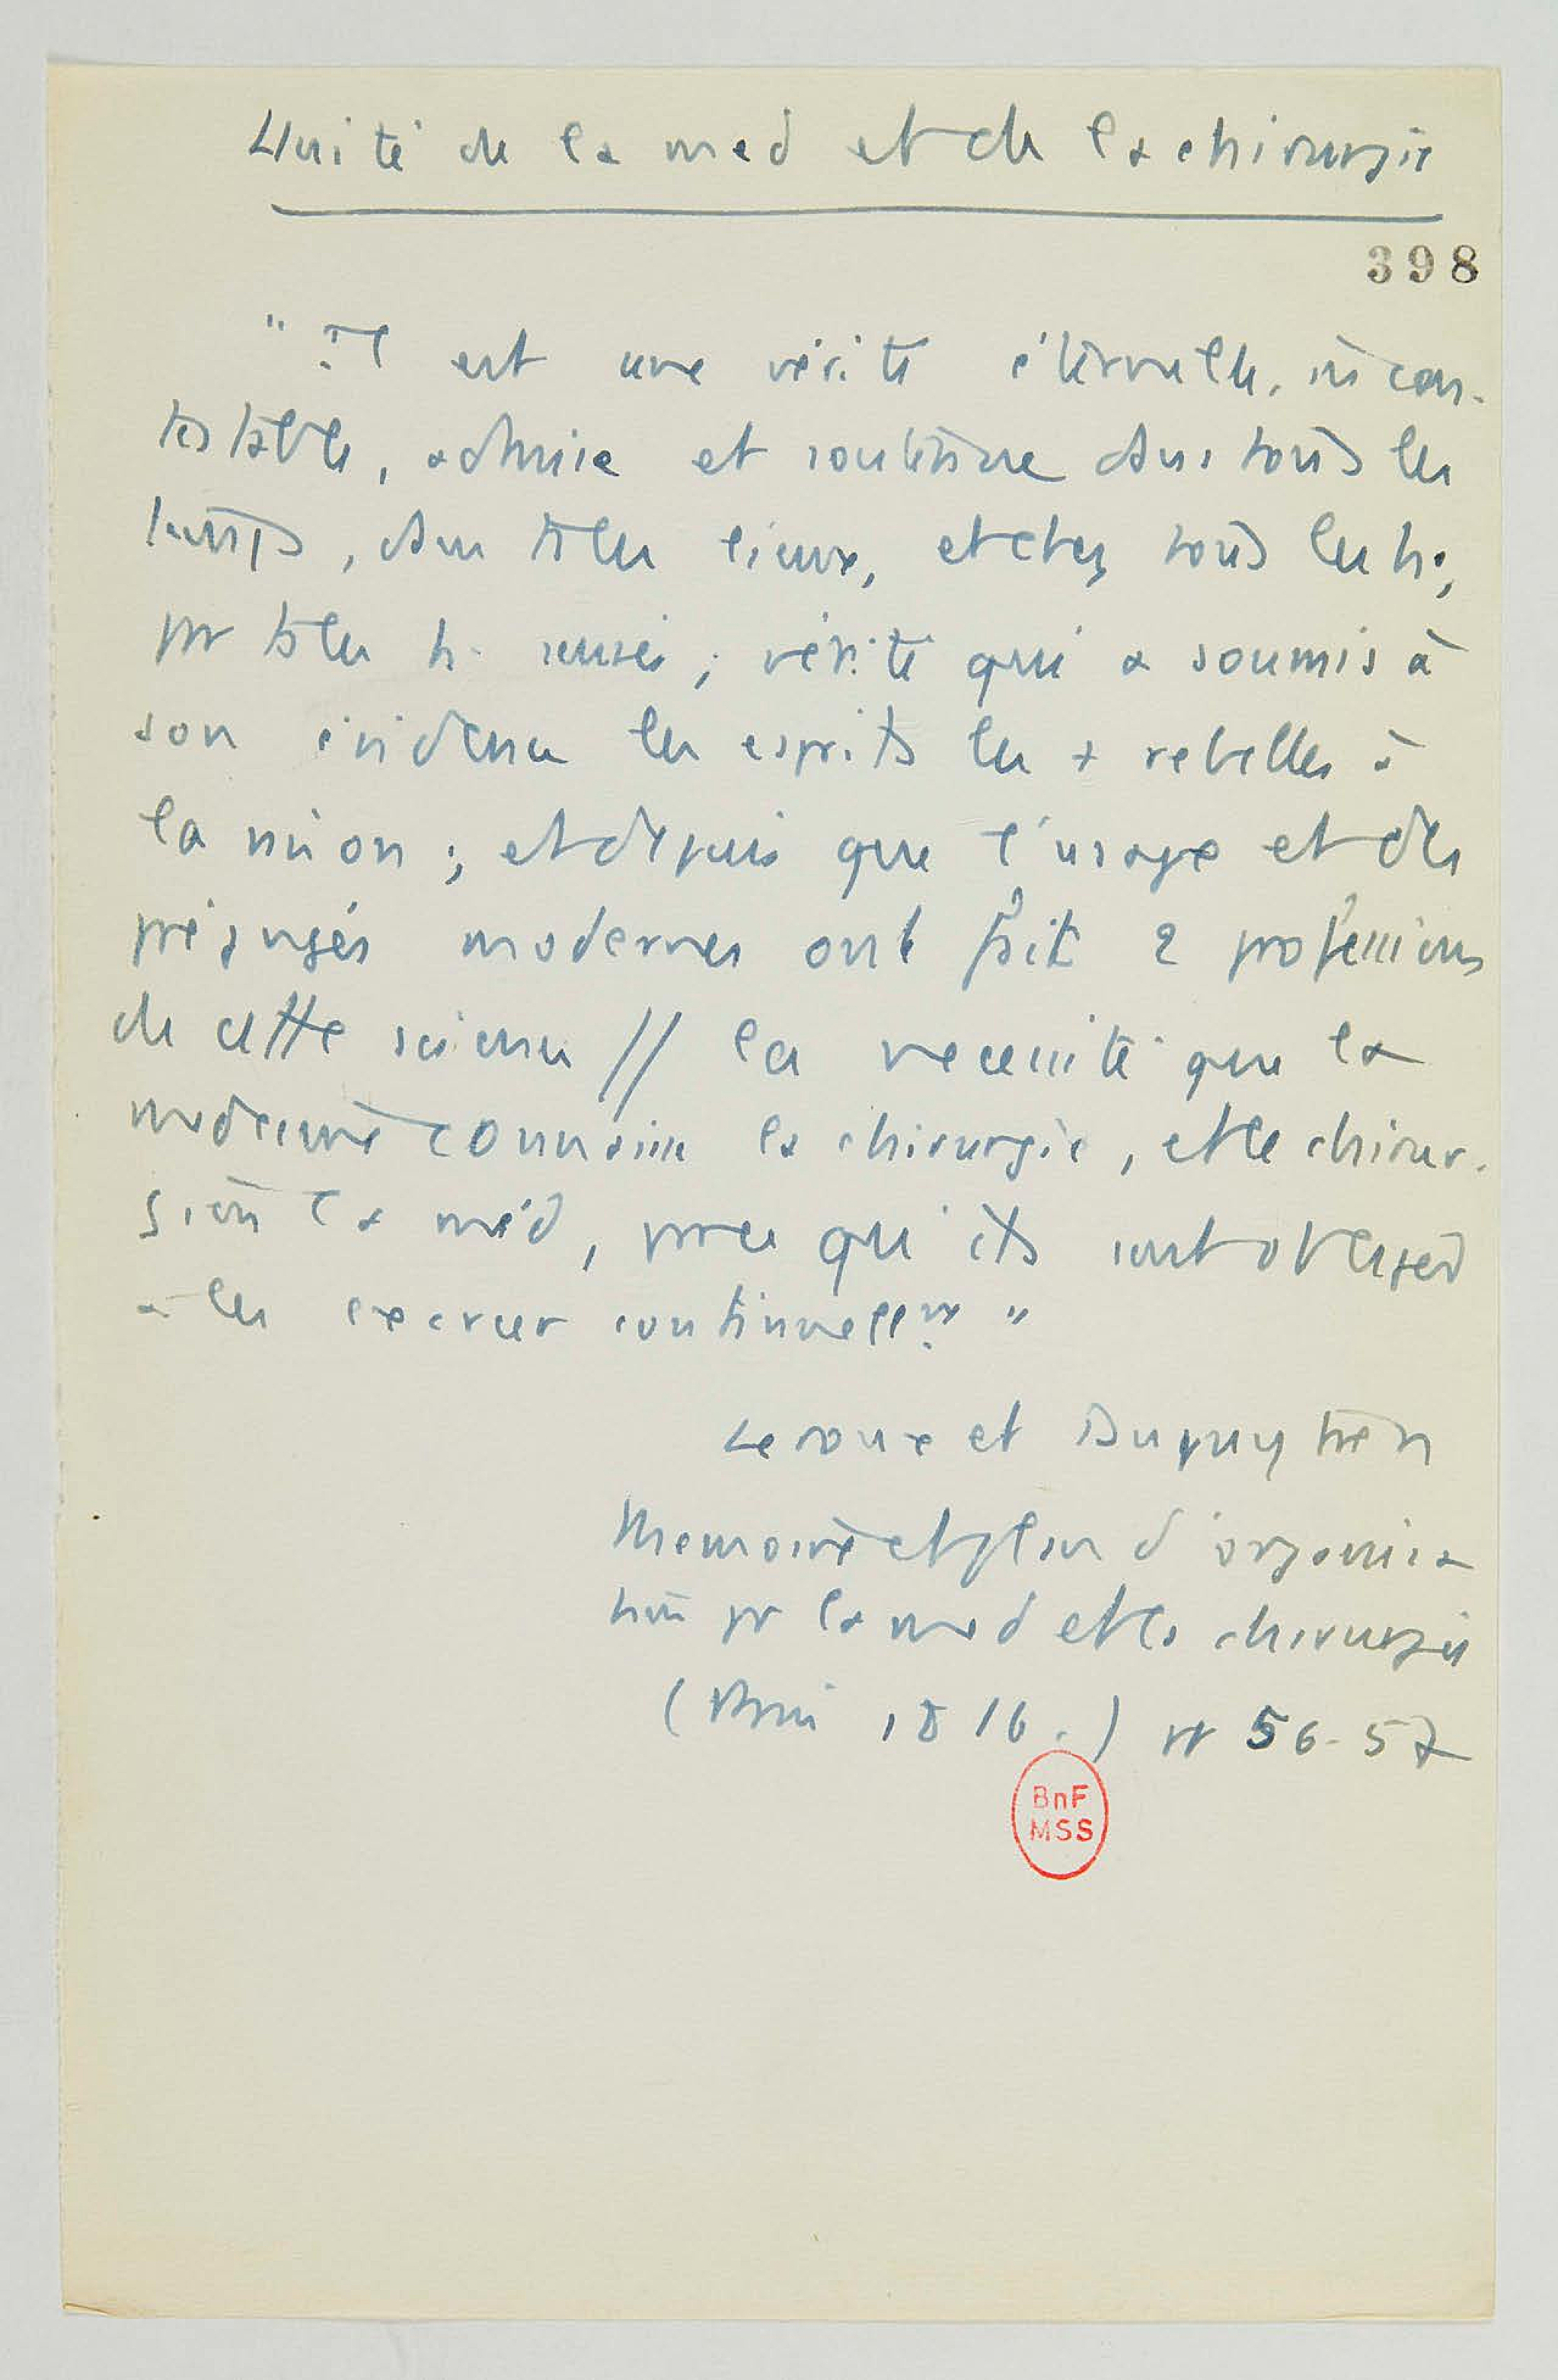 Unité de la med et de la chirurgie
398
" Il est une vérité éternelle, incon-
testable, admise et soutenue dans tous les
temps, dans ts les lieux, et chez tous les h.,
par ts les h. sensés ; vérité qui a soumis à
son évidence les esprits les + rebelles à
la raison ; et depuis que l'usage et des
préjugés modernes ont fait 2 professions
de cette science // la necessité que la
medecine connaisse la chirurgie, et le chirur-
gien la méd, parce qu'ils sont obligés
à les exercer continuellmt "
Leroux et Dupuytren
Memoire et plan d'organisa
tion pr la med et la chirurgie
(Paris 1816.) pp 56-57
BnF
MSS